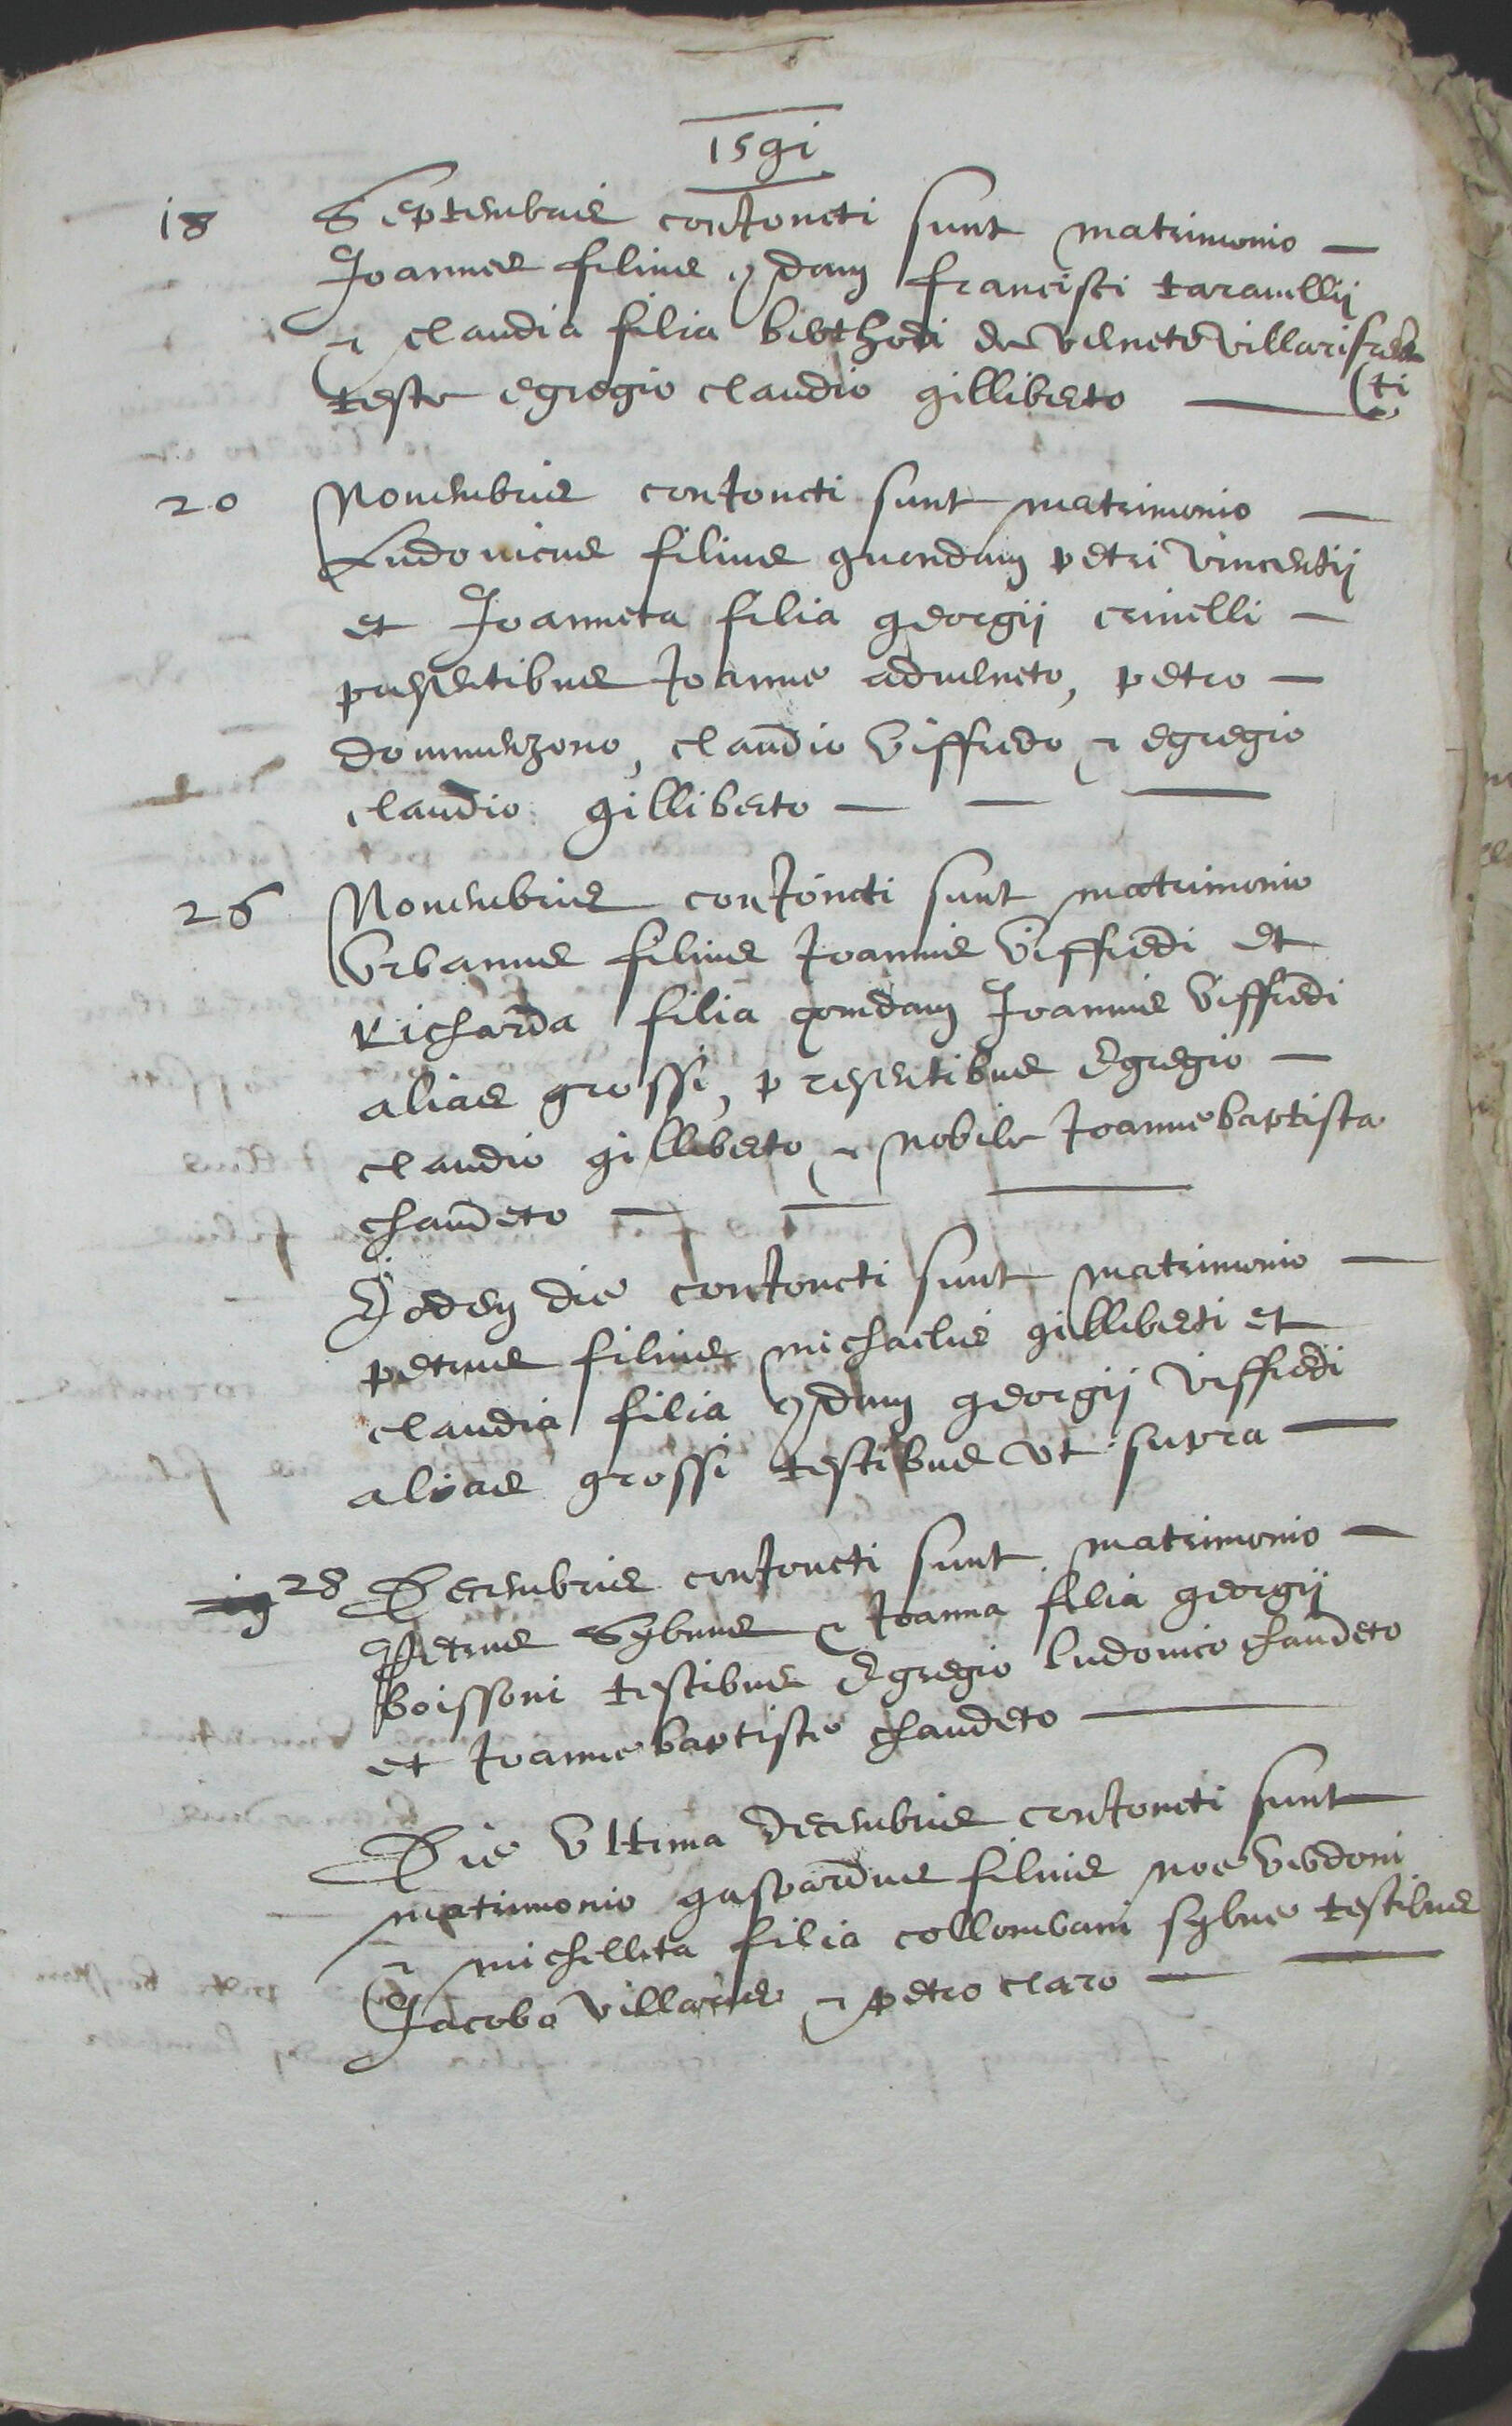 1591
18 Septembris conJoncti sunt matrimonio —
Joannes filius qdam francisci taravellij
& claudia filia berthodi de verneto villarisfrede
teste egregio claudio gilliberto — (ti
20 Novembris conJoncti sunt matrimonio —
Ludovicus filius quondam petri vincentij
et Joanneta filia georgij crivelli —
presentibus Joanne adverneto, petro —
dommenzono, claudio viffredo & egregio
claudio gilliberto — — —
26 Novembris conJoncti sunt matrimonio
Urbanus filius Joannis viffredi et
Richarda filia quondam Joannis viffredi
alias grossi, presentibus Egregio —
claudio gilliberto & nobile Joannebaptista
chaudeto — — —
Eodem die conJoncti sunt matrimonio —
petrus filius michaelis gilliberti et
claudia filia qdam georgij viffredi
alias grossi testibus ut supra —
28 Decembris conJoncti sunt matrimonio —
Petrus Sybuue & Joanna filia georgij
boissoni testibus Egregio ludovico chaudeto
et Joannebaptiste chaudeto —
Die Ultima decembris conJoncti sunt
matrimonio gaspardus filius noe verdoni
& michelleta filia collombani sybue testibus
Jacobo villarus & petro claro — —